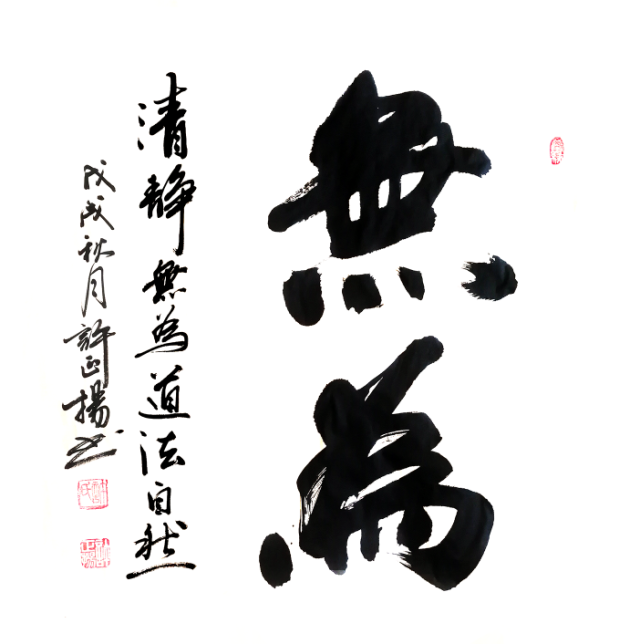 無為
清静無為道法自然
戊戌秋月許正揚书